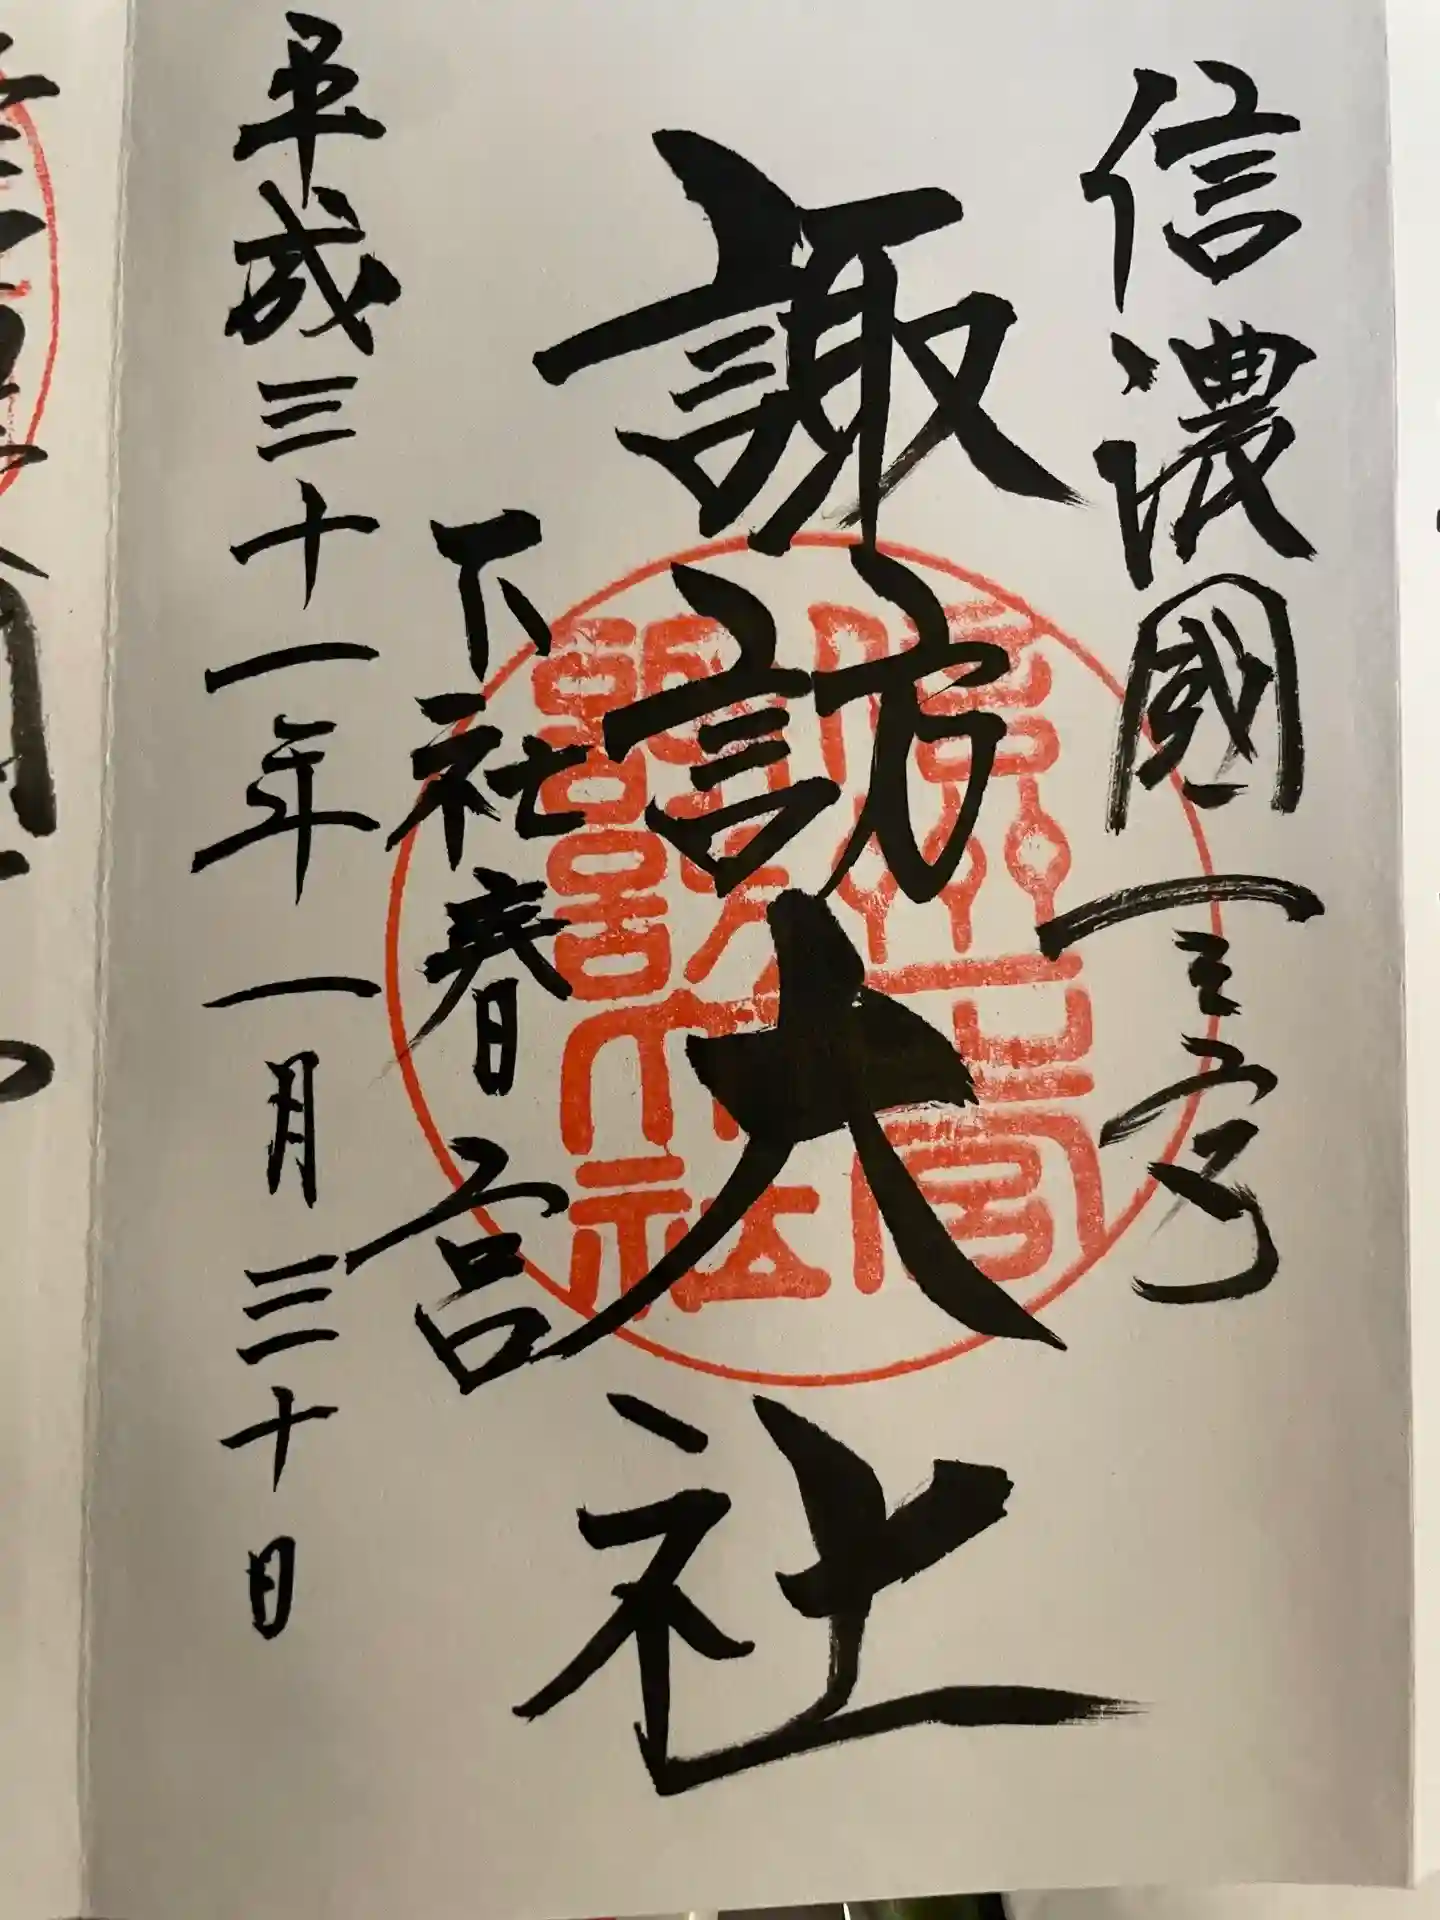 信濃國一之宮
諏訪大社
下社春宮
平成三十一年一月三十日
信州一之宮
諏訪大社